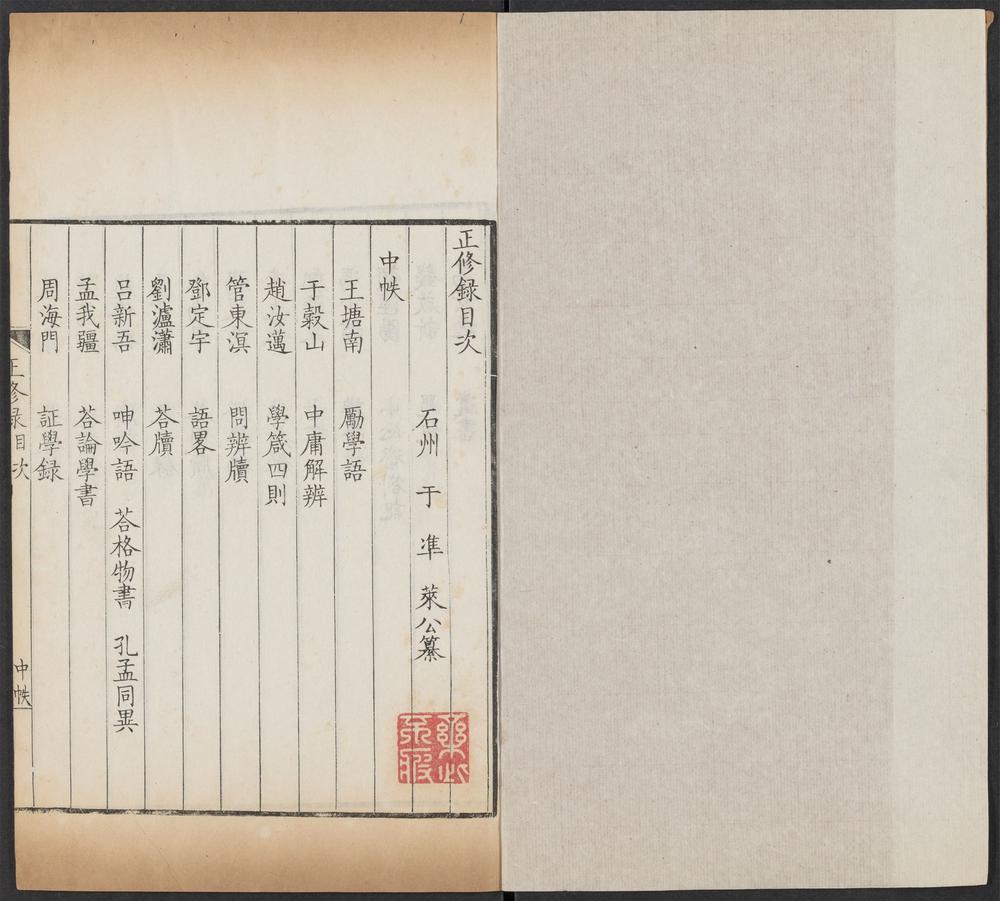 正修録目次
石州 于 凖 萊公纂
中帙
王塘南 勵學語
于穀山 中庸解辨
趙汝邁 學箴四則
管東溟 問辨牘
鄧定宇 語畧
劉瀘瀟 荅牘
吕新吾 呻吟語 荅格物書 孔孟同異
孟我疆 荅論學書
周海門 証學録
正修録目次 中帙